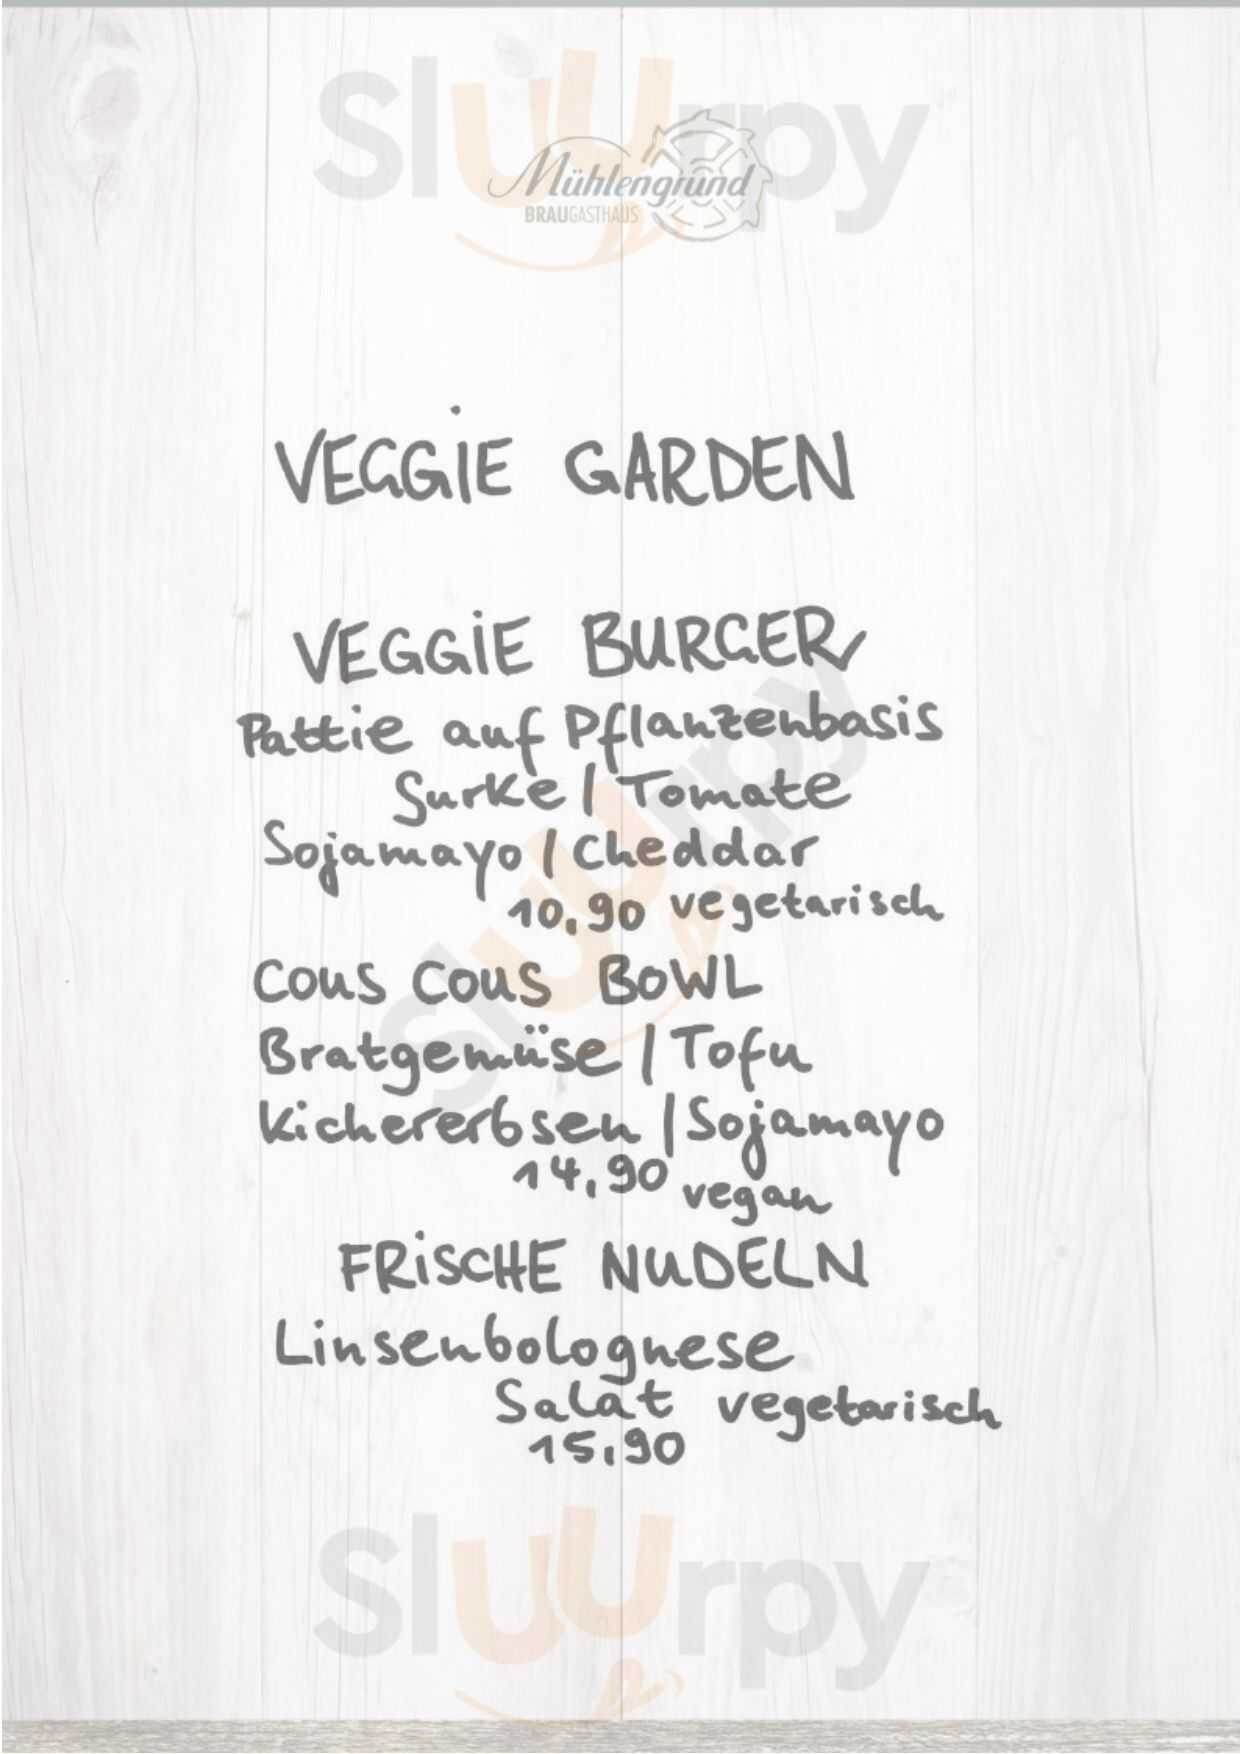 Sluurpy
Mühlengrund
BRAUGASTHAUS
VEGGIE GARDEN
VEGGIE BURGER
Pattie auf Pflanzenbasis
Gurke / Tomate
Sojamayo / Cheddar
10,90 vegetarisch
COUS COUS BOWL
Bratgemüse / Tofu
Kichererbsen / Sojamayo
14,90 vegan
FRISCHE NUDELN
Linsenbolognese
Salat vegetarisch
15,90
Sluurpy
Sluurpy